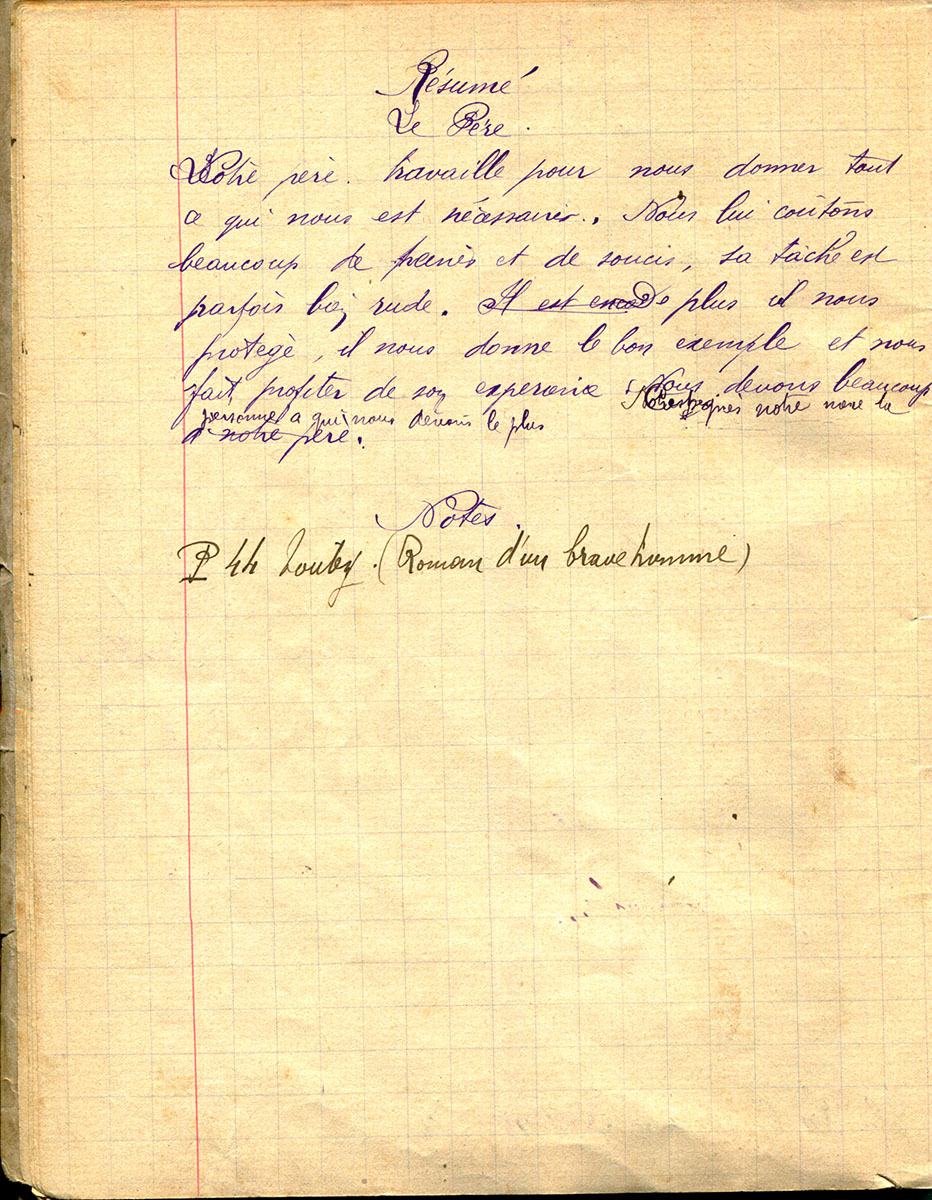 Résumé
Le Père.
Notre père travaille pour nous donner tout
ce qui nous est nécessaire. Nous lui coûtons
beaucoup de peines et de soucis, sa tâche est
parfois bien rude. Il est De plus il nous
protège, il nous donne le bon exemple et nous
fait profiter de son experience Nous devons beaucoup
notre mere la
personne a qui nous devons le plus
à notre père.
Notes
P 44 (Roman d'un brave homme)